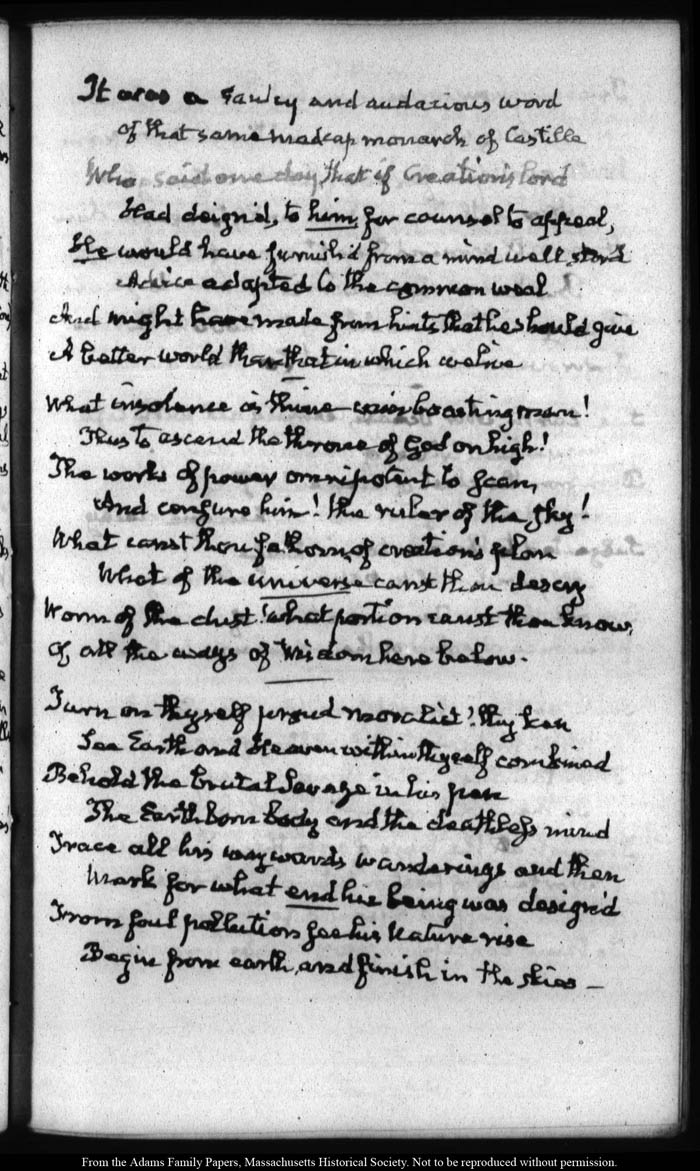 It was a sawcy and audacious word
of that same madcap monarch of Castille
Who said one day, that if Creation's Lord
Had deign'd, to him, for counsel to appeal,
He would have furnish'd from a mind well stor'd
Advice adapted to the common weal
And might have made from hints that he should give
A better world than that in which we live
What insolence is thine vain boasting man!
Thus to ascend the throne of God on high!
The works of power omnipotent to scan,
And censure him! the ruler of the sky!
What canst thou fathom, of creation's plan
What of the universe canst thou descry
Worm of the dust! what portion canst thou know,
Of all the ways of Wisdom here below.
Turn on thyself proud moralist! thy ken
See Earth and Heaven within thyself combined
Behold the brutal Savage in his pen
The Earth born body and the deathless mind
Trace all his waywards wanderings and then
Mark for what end his being was design'd
From foul pollution see his Nature rise
Begin from earth, and finish in the skies —
From the Adams Family Papers, Massachusetts Historical Society. Not to be reproduced without permission.